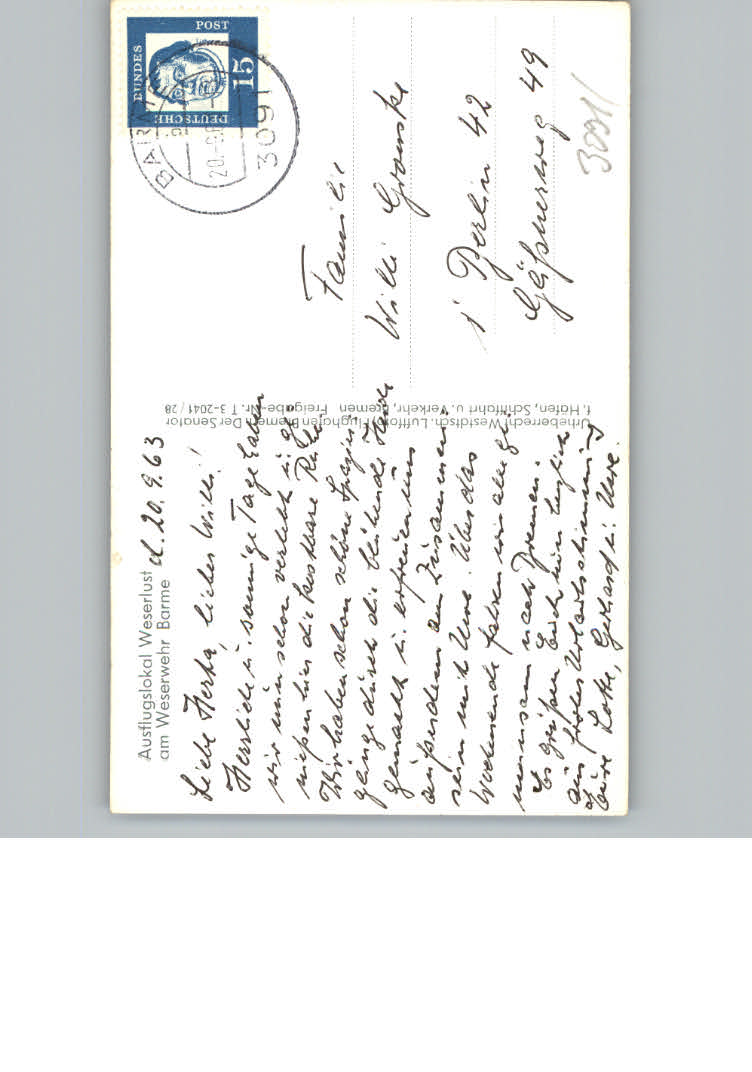 Ausflugslokal Weserlust
am Weserwehr Barme
d. 20.9.63
Liebe Herta, lieber Willi!
Herrliche u. sonnige Tage haben
wir nun schon verlebt u. ge
nießen hier die kostbare Ruhe.
Wir haben schon schöne Spazier
gänge durch die blühende Heide
gemacht u. erfreuen uns
außerdem am Zusammen
sein mit Uwe. Über das
Wochenende fahren wir alle ge
meinsam nach Bremen.
Es grüßen Euch hier
in froher Urlaubsstimmung
Eure Lotte, Gerhard u. Uwe.
Urheberrecht Westdtsch. Luftfoto, Flughafen Bremen Der Senator
f. Häfen, Schiffahrt u. Verkehr, Bremen Freigabe-Nr. T 3-2041/28
DEUTSCHE
BUNDES
POST
15
BARME
20.-9.6
3091
Familie
Willi
1 Berlin 42
49
3091